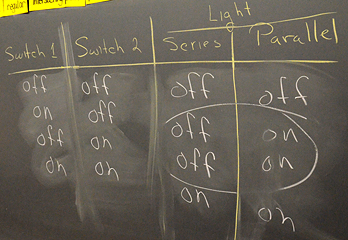 regular
Light
Switch 1 Switch 2 Series Parallel
off off off off
on off off on
off on off on
on on on on